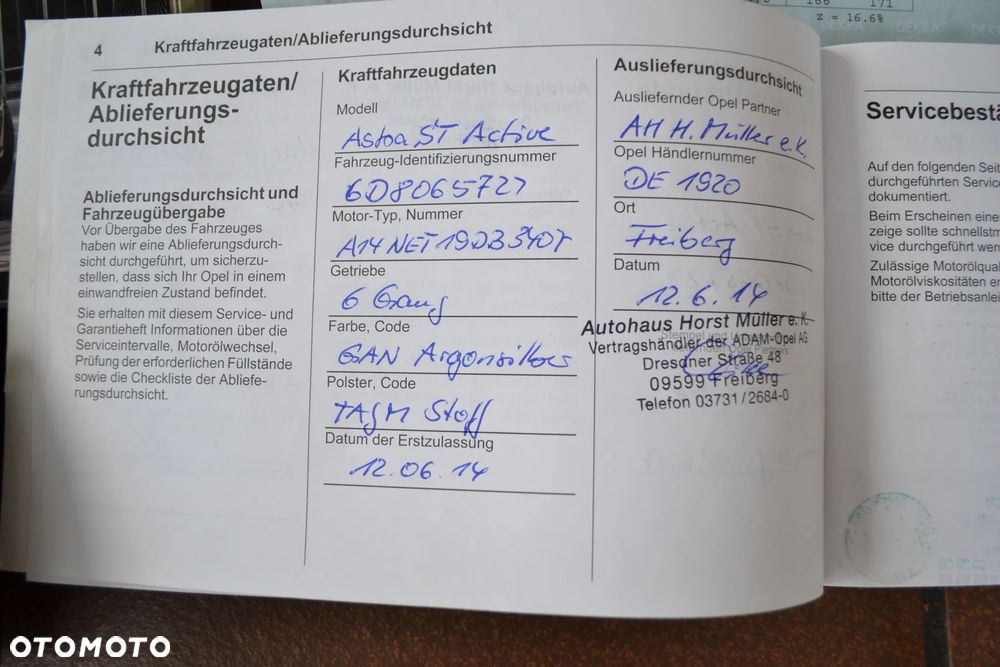 166 171
z = 16.6%
DEKRA DEKRA
4 Kraftfahrzeugaten/Ablieferungsdurchsicht
Kraftfahrzeugaten/
Ablieferungs-
durchsicht
Ablieferungsdurchsicht und
Fahrzeugübergabe
Vor Übergabe des Fahrzeuges
haben wir eine Ablieferungsdurch-
sicht durchgeführt, um sicherzu-
stellen, dass sich Ihr Opel in einem
einwandfreien Zustand befindet.
Sie erhalten mit diesem Service- und
Garantieheft Informationen über die
Serviceintervalle, Motorölwechsel,
Prüfung der erforderlichen Füllstände
sowie die Checkliste der Abliefe-
rungsdurchsicht.
Kraftfahrzeugdaten
Modell
Astra ST Active
Fahrzeug-Identifizierungsnummer
6D8065727
Motor-Typ, Nummer
A14NET 19DB3407
Getriebe
6 Gang
Farbe, Code
GAN Argonsilber
Polster, Code
TAJM Stoff
Datum der Erstzulassung
12.06.14
Auslieferungsdurchsicht
Ausliefernder Opel Partner
AH H. Müller e.K.
Opel Händlernummer
DE 1920
Ort
Freiberg
Datum
12.6.14
Autohaus Horst Müller e. K.
Vertragshändler der ADAM-Opel AG
Dresdner Straße 48
09599 Freiberg
Telefon 03731/2684-0
Servicebestä
Auf den folgenden Seit
durchgeführten Servic
dokumentiert.
Beim Erscheinen eine
zeige sollte schnellstm
vice durchgeführt werd
Zulässige Motorölqual
Motorölviskositäten er
bitte der Betriebsanlei
OTOMOTO